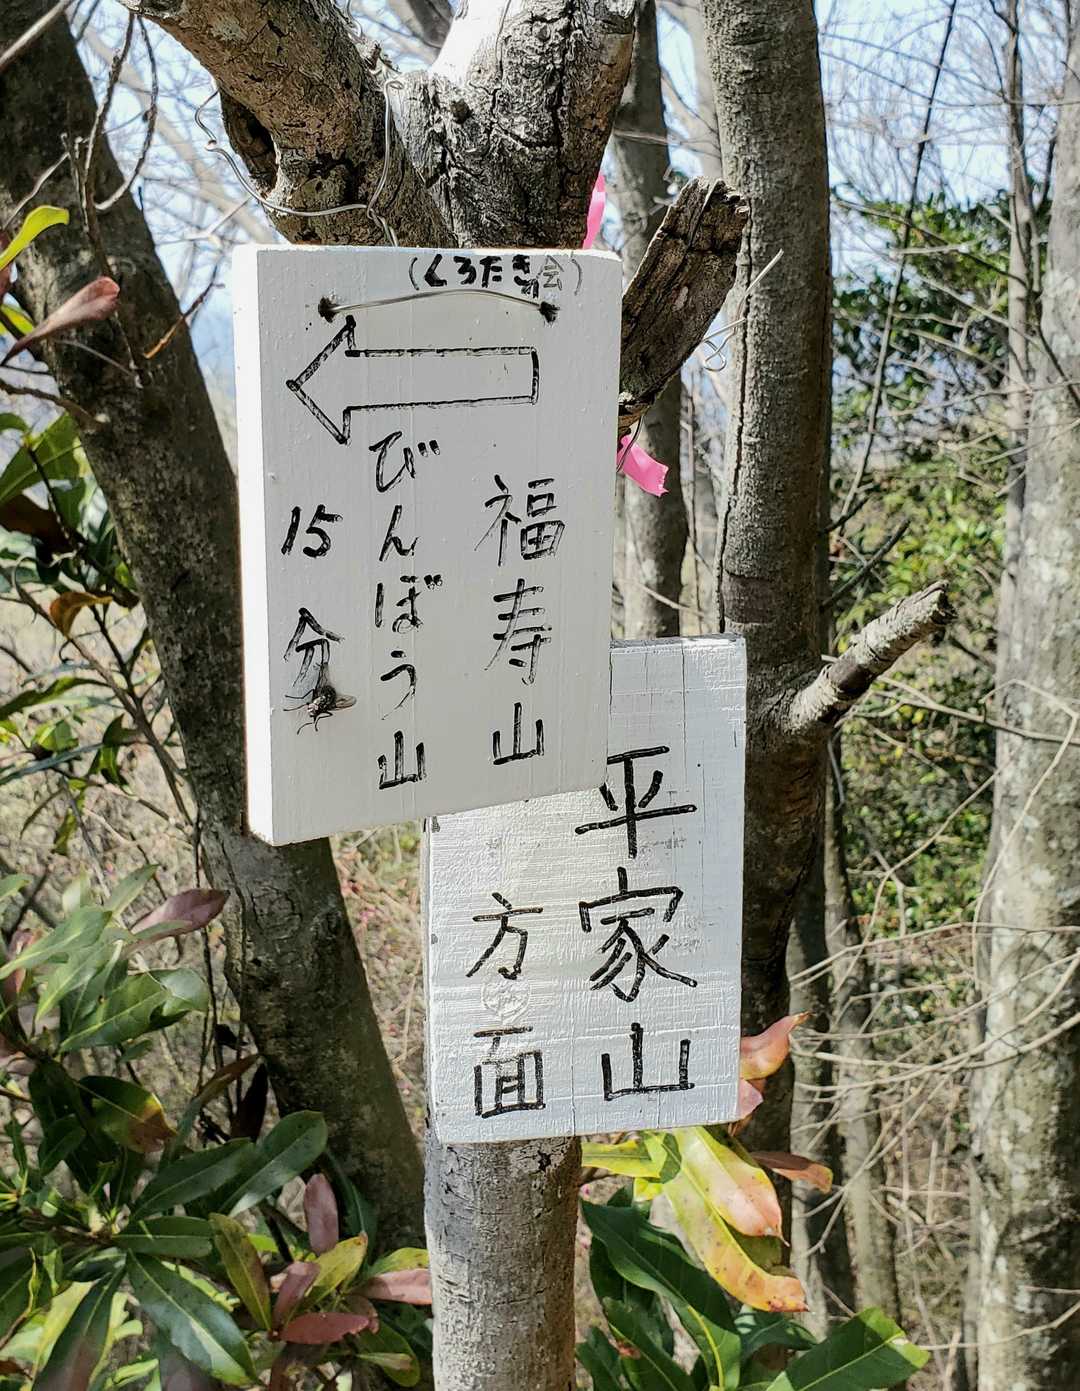 (くろたき会)
福寿山
びんぼう山
15分
平家山
方面